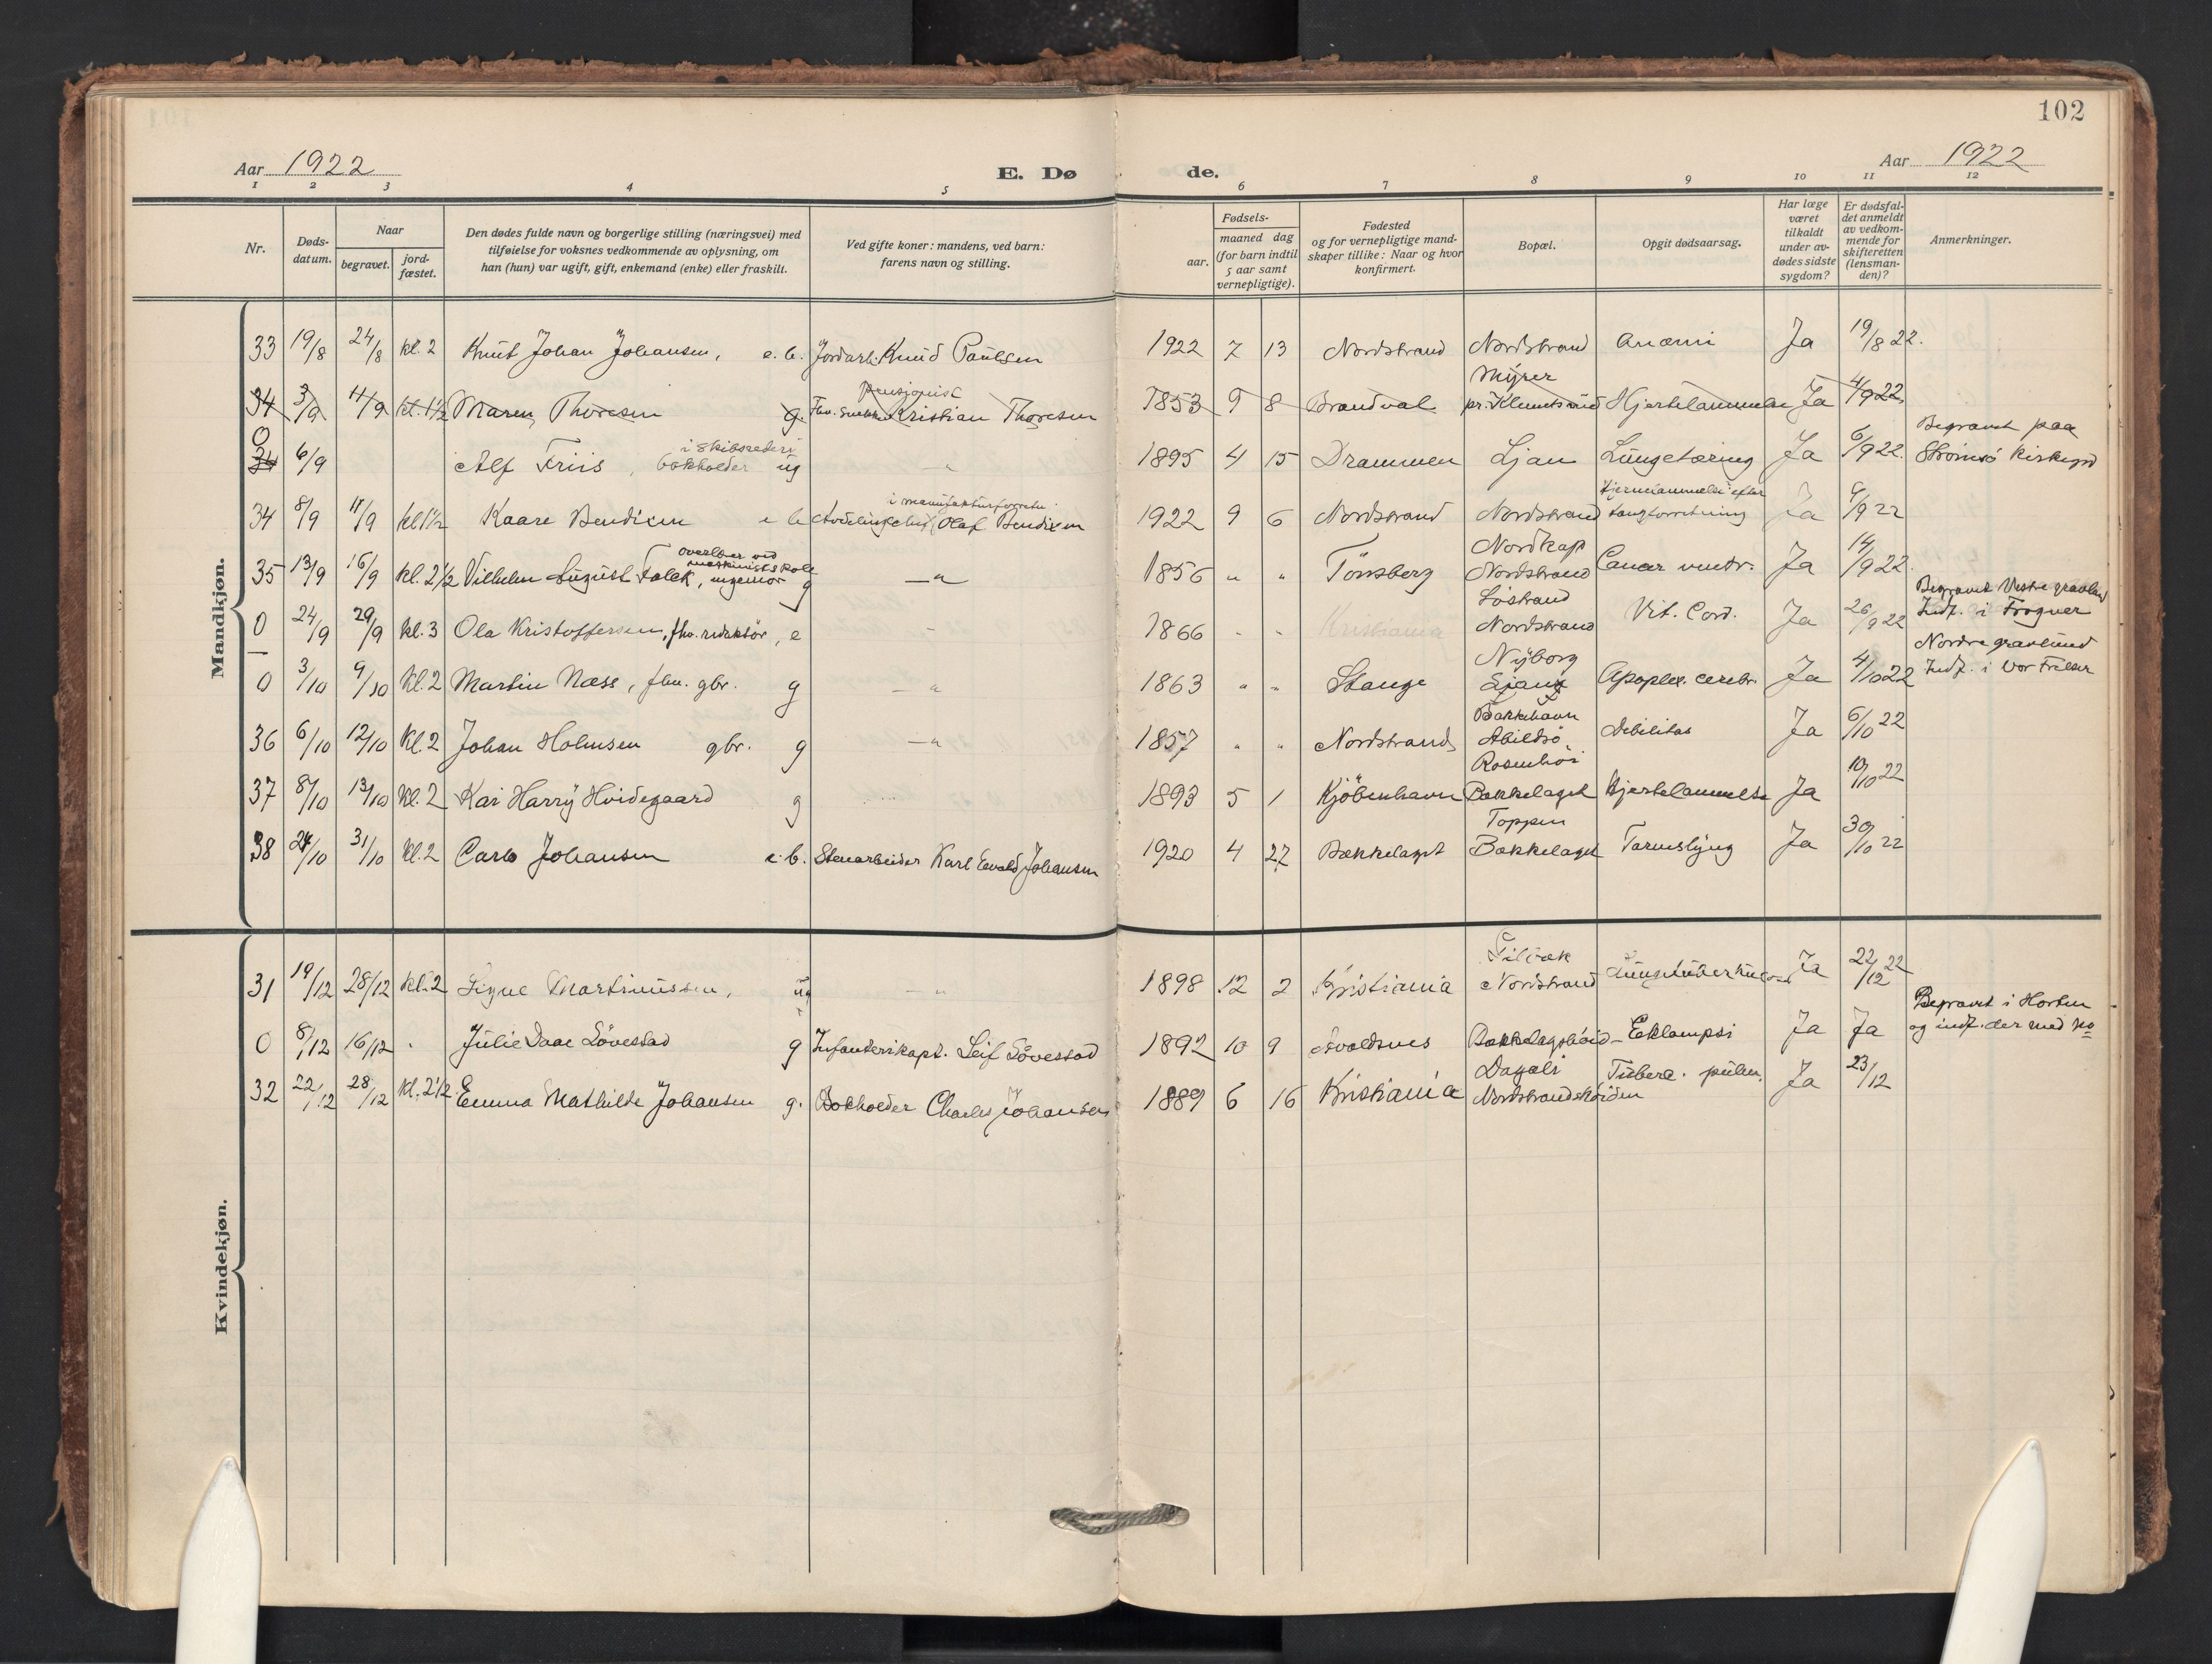 102
Aar 1922 E. Dø de. Aar 1922
1 2 3 4 5 6 7 8 9 10 11 12
Nr.
Døds-
datum.
Naar
begravet.
jord-
fæstet.
Den dødes fulde navn og borgerlige stilling (næringsvei) med
tilføielse for voksnes vedkommende av oplysning, om
han (hun) var ugift, gift, enkemand (enke) eller fraskilt.
Ved gifte koner: mandens, ved barn:
farens navn og stilling.
Fødsels-
aar.
maaned dag
(for barn indtil
5 aar samt
vernepligtige).
Fødested
og for vernepligtige mand-
skaper tillike: Naar og hvor
konfirmert.
Bopæl.
Opgit dødsaarsag.
Har læge
været
tilkaldt
under av-
dødes sidste
sygdom?
Er dødsfal-
det anmeldt
av vedkom-
mende for
skifteretten
(lensman-
den)?
Anmerkninger.
Mandkjøn.
33 19/8 24/8 kl. 2 Knut Johan Johansen, e. b. Jordarb. Knud Paulsen 1922 7 13 Nordstrand Nordstrand Anæmi Ja 19/8 22.
pensjonist Myrer
34 3/9 11/9 kl. 1 1/2 Maren Thoresen g Fhv. Kristian Thoresen 1853 9 8 Brandval pr. Klemetsrud Hjertelammelse Ja 4/9 22.
0 i skibsrederi Begravet paa
34 6/9 Alf Friis, bokholder ug " 1895 4 15 Drammen Ljan Lungetæring Ja 6/9 22. Strømsø Kirkegd
i manufakturforretn. Hjertelammelse efter
34 8/9 11/9 kl 1 1/2 Kaare Bendixen e b Olaf Bendixen 1922 9 6 Nordstrand Nordstrand tangforretning Ja 9/9 22
overlærer ved Nordkap
maskinistskole
35 13/9 16/9 kl. 2 1/2 Vilhelm August Falck, ingeniør g — " 1856 " " Tönsberg Nordstrand Cancer ventr. Ja 14/9 22.
Löstrand Begravet Vestre gravlund
0 24/9 29/9 kl. 3 Ola Kristoffersen, fhv. redaktör, e - 1866 " " Kristiania Nordstrand Vit. Cord. Ja 26/9 22 Indf. i Frogner
Nyborg Nordre gravlund
0 3/10 9/10 kl. 2 Martin Næss, fhv. gbr. g — " 1863 " " Stange Ljan Apoplex. cerebr. Ja 4/10 22 Indf. i Vor Frelser
Bakkehavn
36 6/10 12/10 kl. 2 Johan Holmsen gbr. g — " 1857 " " Nordstrand Abildsö Debilitas Ja 6/10 22
Rosenhöi
37 8/10 13/10 kl. 2 Kai Harry Hvidegaard g 1893 5 1 Kjöbenhavn Bækkelaget Hjertelammelse Ja 10/10 22
Toppen
38 27/10 31/10 kl. 2 Carlo Johansen e. b. Stenarbeider Karl Edvald Johansen 1920 4 27 Bækkelaget Bækkelaget Tarmslyng Ja 30/10 22
Kvindekjøn.
31 19/12 28/12 kl. 2 Signe Martinussen, ug — " 1898 12 2 Kristiania Nordstrand Lungetuberkulose Ja 22/12 22
Begravet i Horten
0 8/12 16/12 . Julie Daae Lövestad g Infanterikapt. Leif Lövestad 1892 10 9 Avaldsnes Bækkelagshöiden Eklampsi Ja Ja og indf. der med No
Dagali
32 22/12 28/12 kl. 2 1/2 Emma Mathilde Johansen g. Bokholder Charles Johansen 1889 6 16 Kristiania Nordstrandshöiden Tuberc. pulm. Ja 23/12